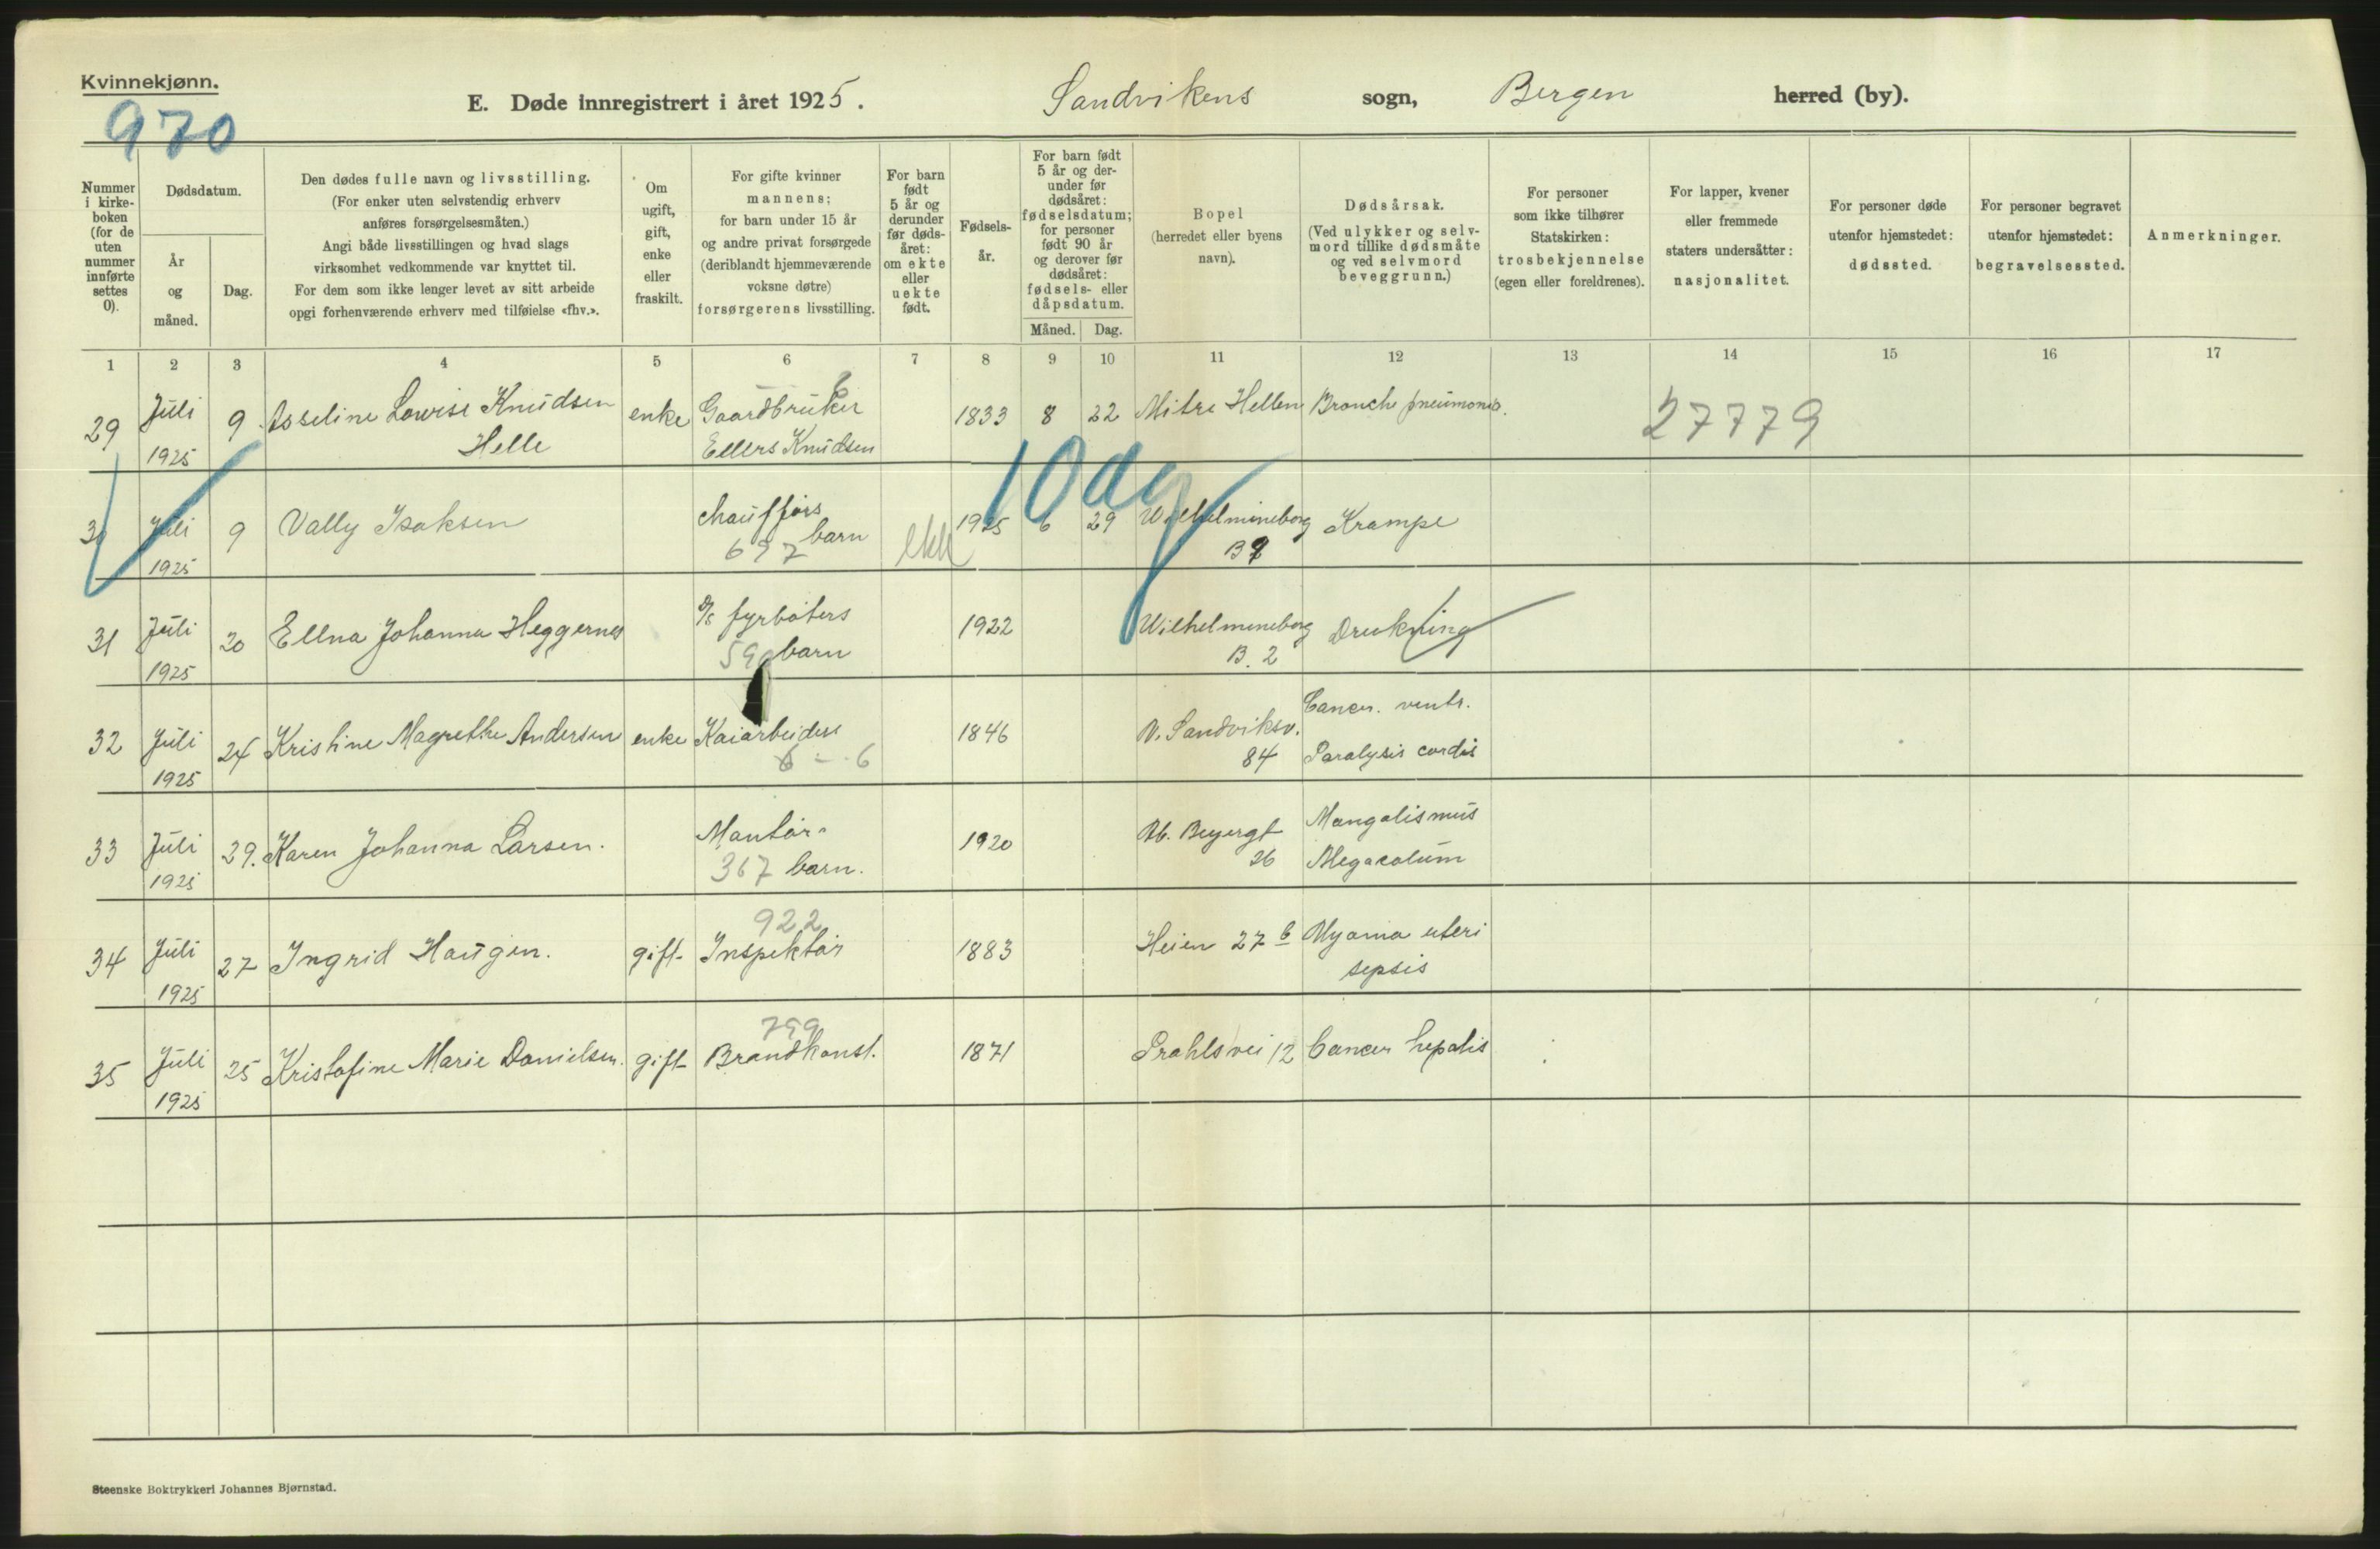 Kvinnekjønn.
970
E. Døde innregistrert i året 1925.
Sandvikens sogn, Bergen herred (by).
Nummer i kirke-boken (for de uten nummer innførte settes 0).
Dødsdatum.
År og måned.
Dag.
Den dødes fulle navn og livsstilling.
(For enker uten selvstendig erhverv
anføres forsørgelsesmåten.)
Angi både livsstillingen og hvad slags
virksomhet vedkommende var knyttet til.
For dem som ikke lenger levet av sitt arbeide
opgi forhenværende erhverv med tilføielse «fhv.».
Om ugift, gift, enke eller fraskilt.
For gifte kvinner
mannens;
for barn under 15 år
og andre privat forsørgede
(deriblandt hjemmeværende
voksne døtre)
forsørgerens livsstilling.
For barn født 5 år og derunder før døds-året: om ekte eller uekte født.
Fødsels-år.
For barn født
5 år og der-
under før
dødsåret:
fødselsdatum;
for personer
født 90 år
og derover før
dødsåret:
fødsels- eller
dåpsdatum.
Måned. Dag.
Bopel
(herredet eller byens
navn).
Dødsårsak.
(Ved ulykker og selv-
mord tillike dødsmåte
og ved selvmord
beveggrunn.)
For personer
som ikke tilhører
Statskirken:
trosbekjennelse
(egen eller foreldrenes).
For lapper, kvener
eller fremmede
staters undersåtter:
nasjonalitet.
For personer døde
utenfor hjemstedet:
dødssted.
For personer begravet
utenfor hjemstedet:
begravelsessted.
Anmerkninger.
1 2 3 4 5 6 7 8 9 10 11 12 13 14 15 16 17
29 Juli 9 Asseline Lowise Knudsen enke Gaardbruker 1833 8 22 Mitre Hellen Bronche pneumonia. 27779
1925 Helle Ellers Knudsen
10 dg
30 Juli 9 Vally Isaksen chaufførs barn 1925 6 29 Wilhelmineborg Krampe
1925 697 B 2
31 Juli 20 Ellna Johanna Heggernes fyrbøters 1922 Wilhelmineborg Drukning
1925 barn B. 2
32 Juli 24 Kristine Magrethe Andersen enke Kaiarbeiders 1846 N. Sandviksv. Cancer. ventr.
1925 6 - 6 84 Paralysis cordis
33 Juli 29. Karen Johanna Larsen. Montør- 1920 Beyergt Mongolismus
1925 367 barn. 26 Megacolum
922
34 Juli 27 Ingrid Haugen. gift- Inspektør 1883 Heien 27 b Myoma uteri
1925 sepsis
799
35 Juli 25 Kristofine Marie Danielsen. gift- Brandkonst. 1871 Prahlsvei 12 Cancer hepatis
1925
Steenske Boktrykkeri Johannes Bjørnstad.